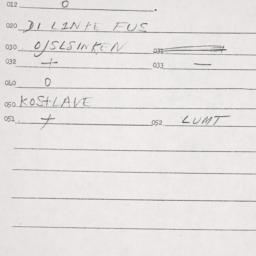 012 0
020 DI LINTE FUS
030 OJSLSINKEN 031
032 + 033 —
040 0
050 KOSTLAVE
051 + 052 LUMT